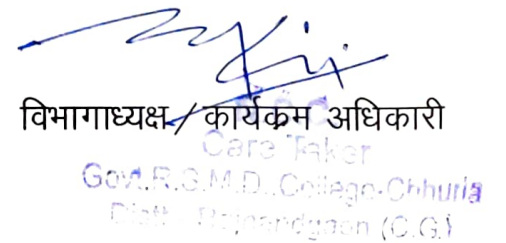 विभागाध्यक्ष / कार्यक्रम अधिकारी
Care Taker
Govt.R.S.M.D. College-Chhuria
Distt- Rajnandgaon (C.G.)